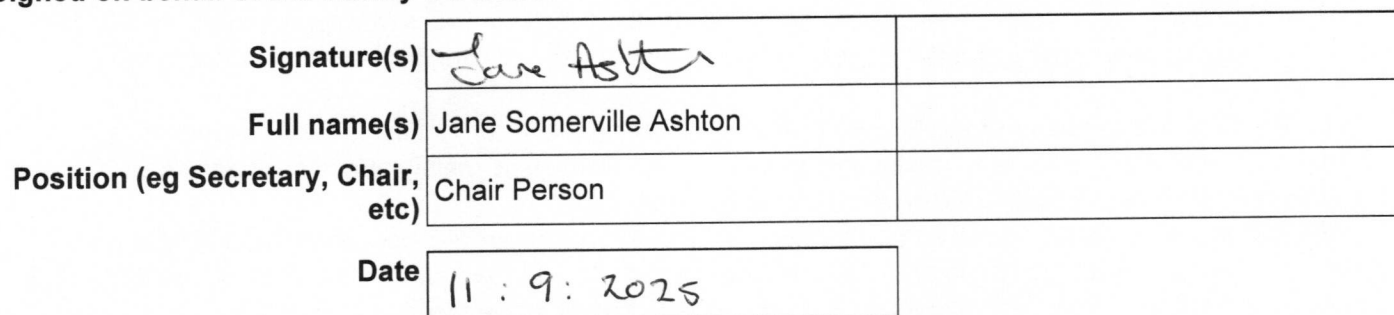 Signature(s) Jane Ashton
Full name(s) Jane Somerville Ashton
Position (eg Secretary, Chair, etc) Chair Person
Date 11 : 9 : 2025